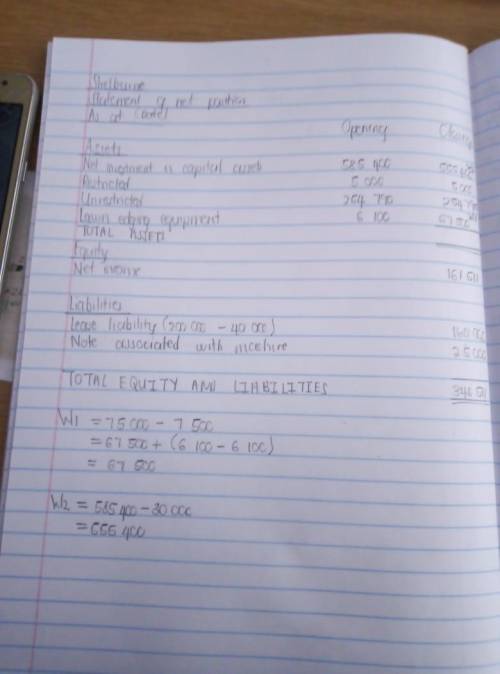 Shelburne
Statement of net position
As at (date)
Opening Closing
Assets
Net investment in capital assets 585 400
Restricted 5 000 5 000
Unrestricted
Lawn edging equipment 6 100
TOTAL ASSETS
Equity
Net income 161 511
Liabilities
Lease liability (200 000 - 40 000) 160 000
Note associated with machine 25 000
TOTAL EQUITY AND LIABILITIES 346 511
W1 = 75 000 - 7 500
= 67 500 + (6 100 - 6 100)
= 67 500
W2 = 585 400 - 30 000
= 555 400